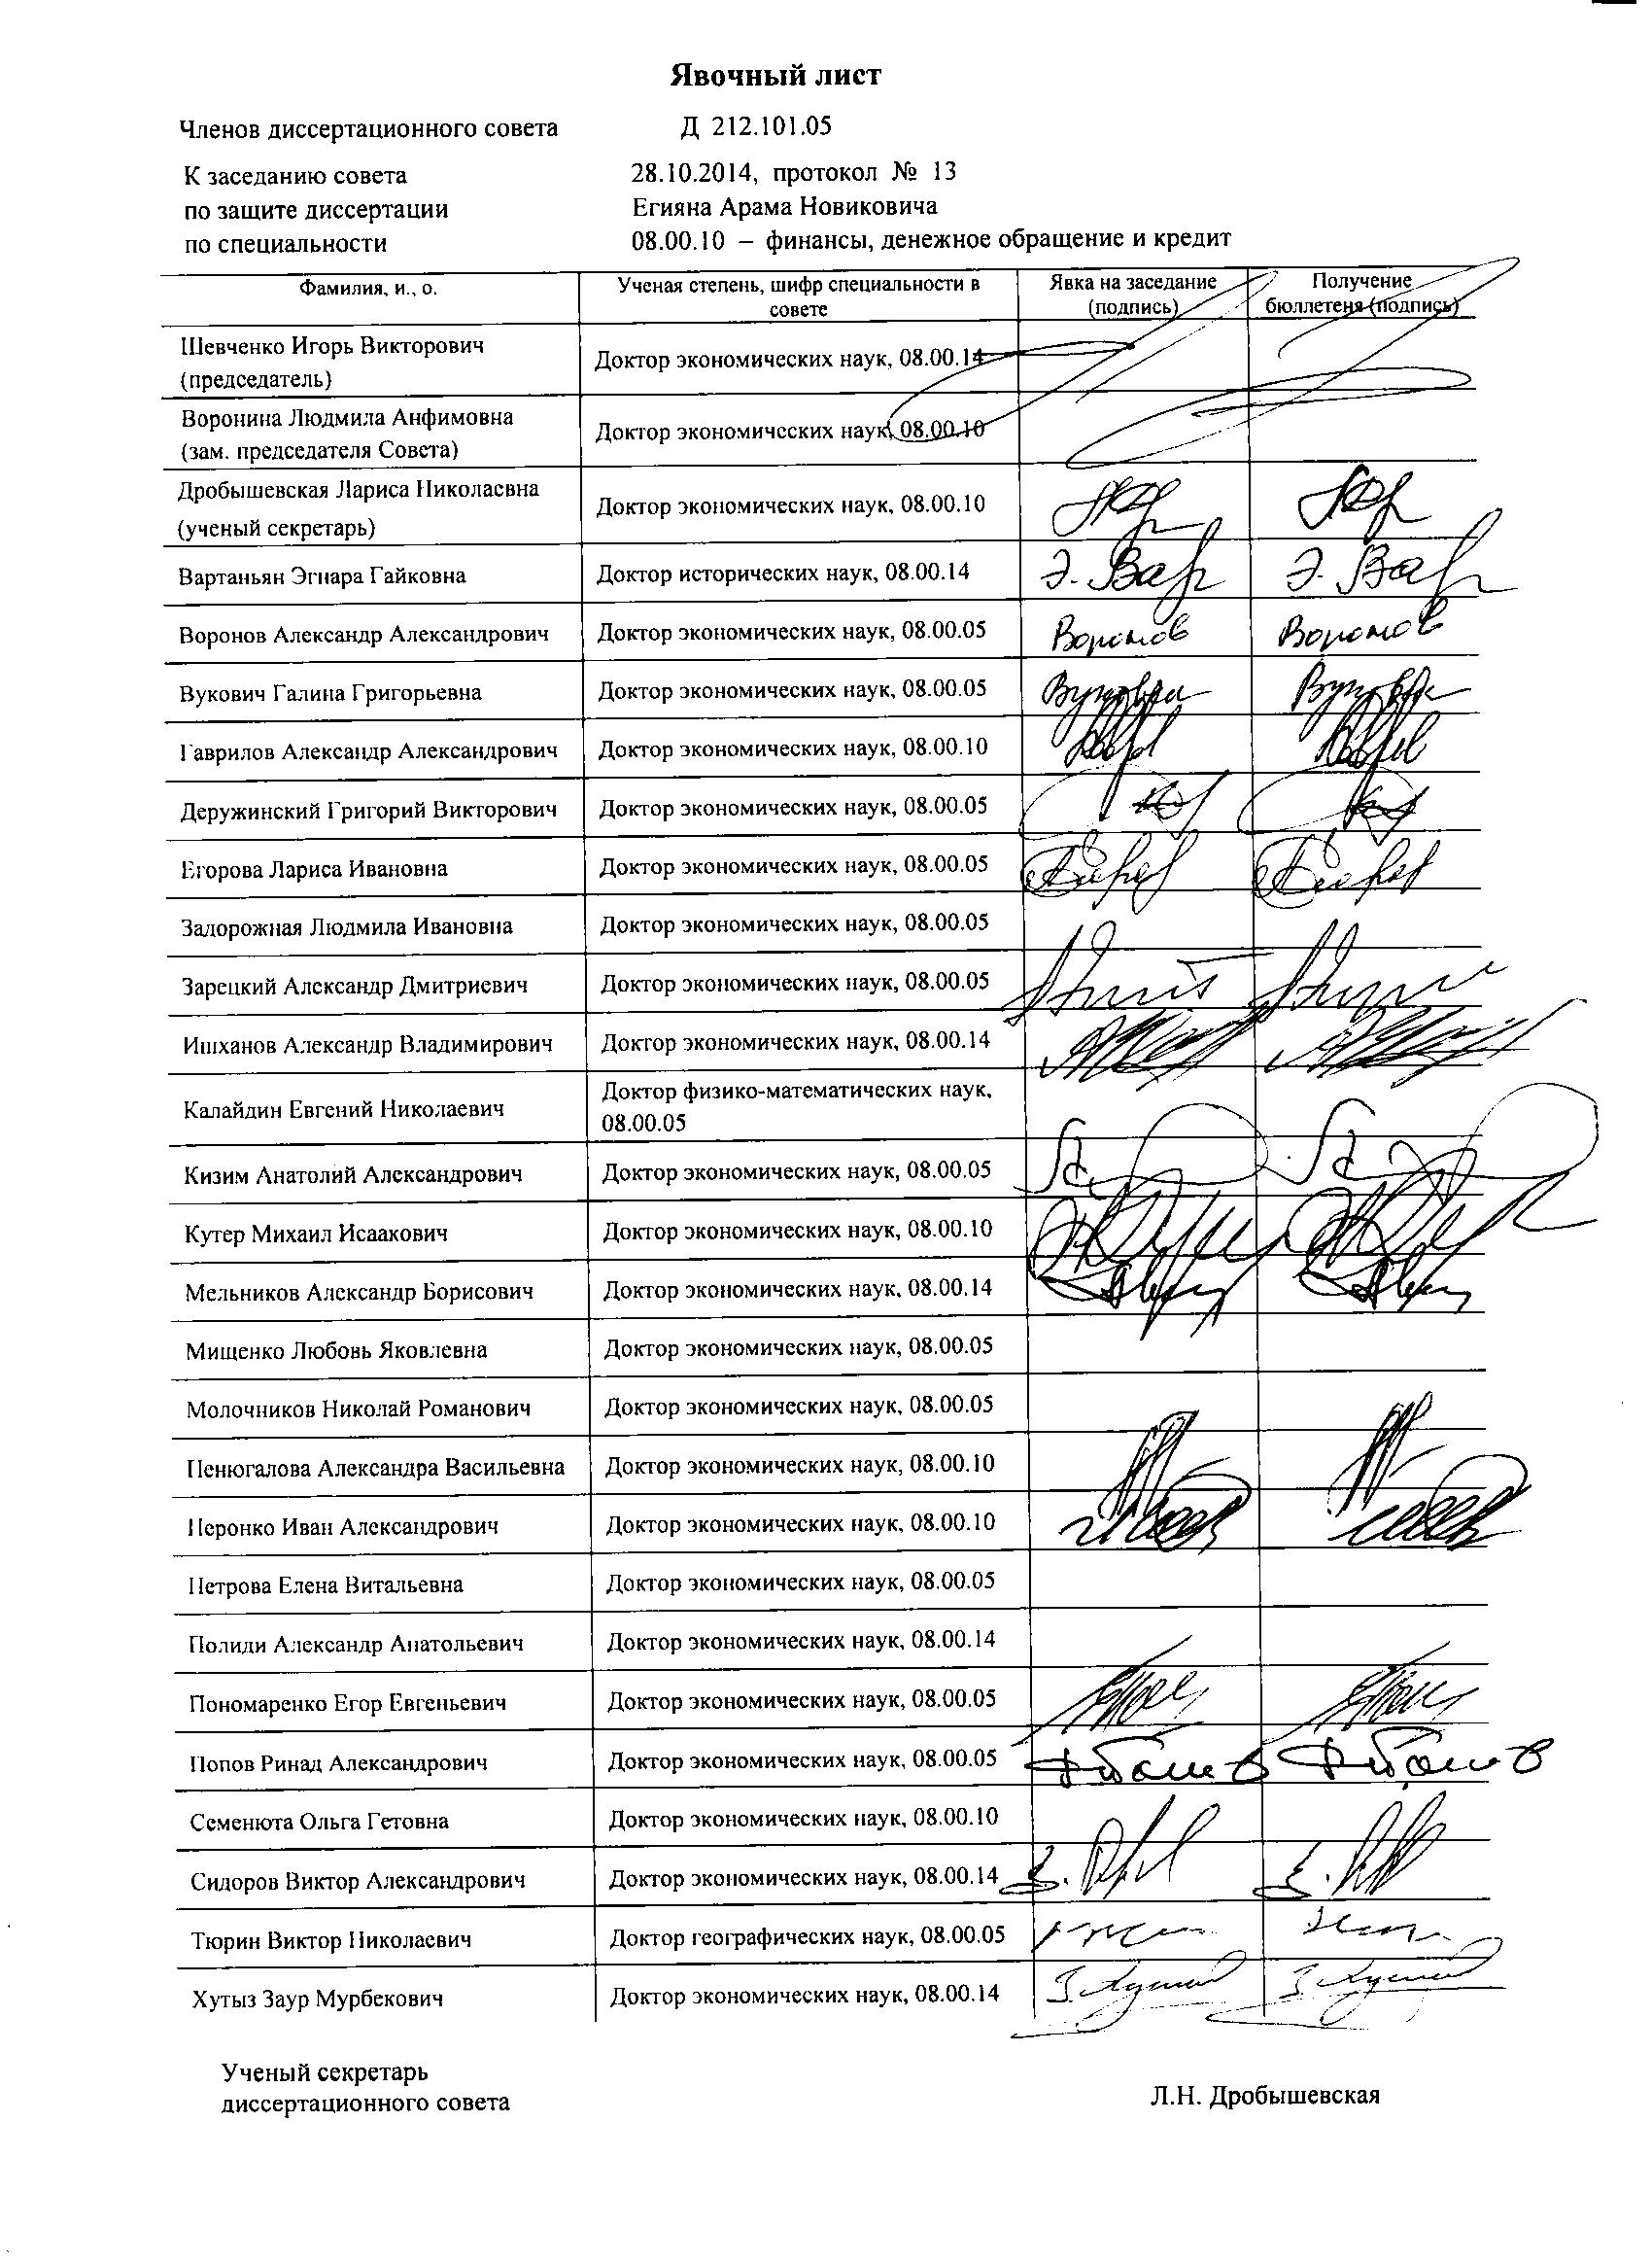 Явочный лист
Членов диссертационного совета Д 212.101.05
К заседанию совета 28.10.2014, протокол № 13
по защите диссертации Егияна Арама Новиковича
по специальности 08.00.10 – финансы, денежное обращение и кредит
Фамилия, и., о. Ученая степень, шифр специальности в совете Явка на заседание (подпись) Получение бюллетеня (подпись)
Шевченко Игорь Викторович
(председатель) Доктор экономических наук, 08.00.14
Воронина Людмила Анфимовна
(зам. председателя Совета) Доктор экономических наук, 08.00.10
Дробышевская Лариса Николаевна
(ученый секретарь) Доктор экономических наук, 08.00.10
Вартаньян Эгнара Гайковна Доктор исторических наук, 08.00.14 Э. Вар Э. Вар
Воронов Александр Александрович Доктор экономических наук, 08.00.05 Воронов Воронов
Вукович Галина Григорьевна Доктор экономических наук, 08.00.05
Гаврилов Александр Александрович Доктор экономических наук, 08.00.10
Деружинский Григорий Викторович Доктор экономических наук, 08.00.05
Егорова Лариса Ивановна Доктор экономических наук, 08.00.05
Задорожная Людмила Ивановна Доктор экономических наук, 08.00.05
Зарецкий Александр Дмитриевич Доктор экономических наук, 08.00.05
Ишханов Александр Владимирович Доктор экономических наук, 08.00.14
Калайдин Евгений Николаевич Доктор физико-математических наук, 08.00.05
Кизим Анатолий Александрович Доктор экономических наук, 08.00.05
Кутер Михаил Исаакович Доктор экономических наук, 08.00.10
Мельников Александр Борисович Доктор экономических наук, 08.00.14
Мищенко Любовь Яковлевна Доктор экономических наук, 08.00.05
Молочников Николай Романович Доктор экономических наук, 08.00.05
Пенюгалова Александра Васильевна Доктор экономических наук, 08.00.10
Перонко Иван Александрович Доктор экономических наук, 08.00.10
Петрова Елена Витальевна Доктор экономических наук, 08.00.05
Полиди Александр Анатольевич Доктор экономических наук, 08.00.14
Пономаренко Егор Евгеньевич Доктор экономических наук, 08.00.05
Попов Ринад Александрович Доктор экономических наук, 08.00.05
Семенюта Ольга Гетовна Доктор экономических наук, 08.00.10
Сидоров Виктор Александрович Доктор экономических наук, 08.00.14
Тюрин Виктор Николаевич Доктор географических наук, 08.00.05
Хутыз Заур Мурбекович Доктор экономических наук, 08.00.14
Ученый секретарь
диссертационного совета Л.Н. Дробышевская